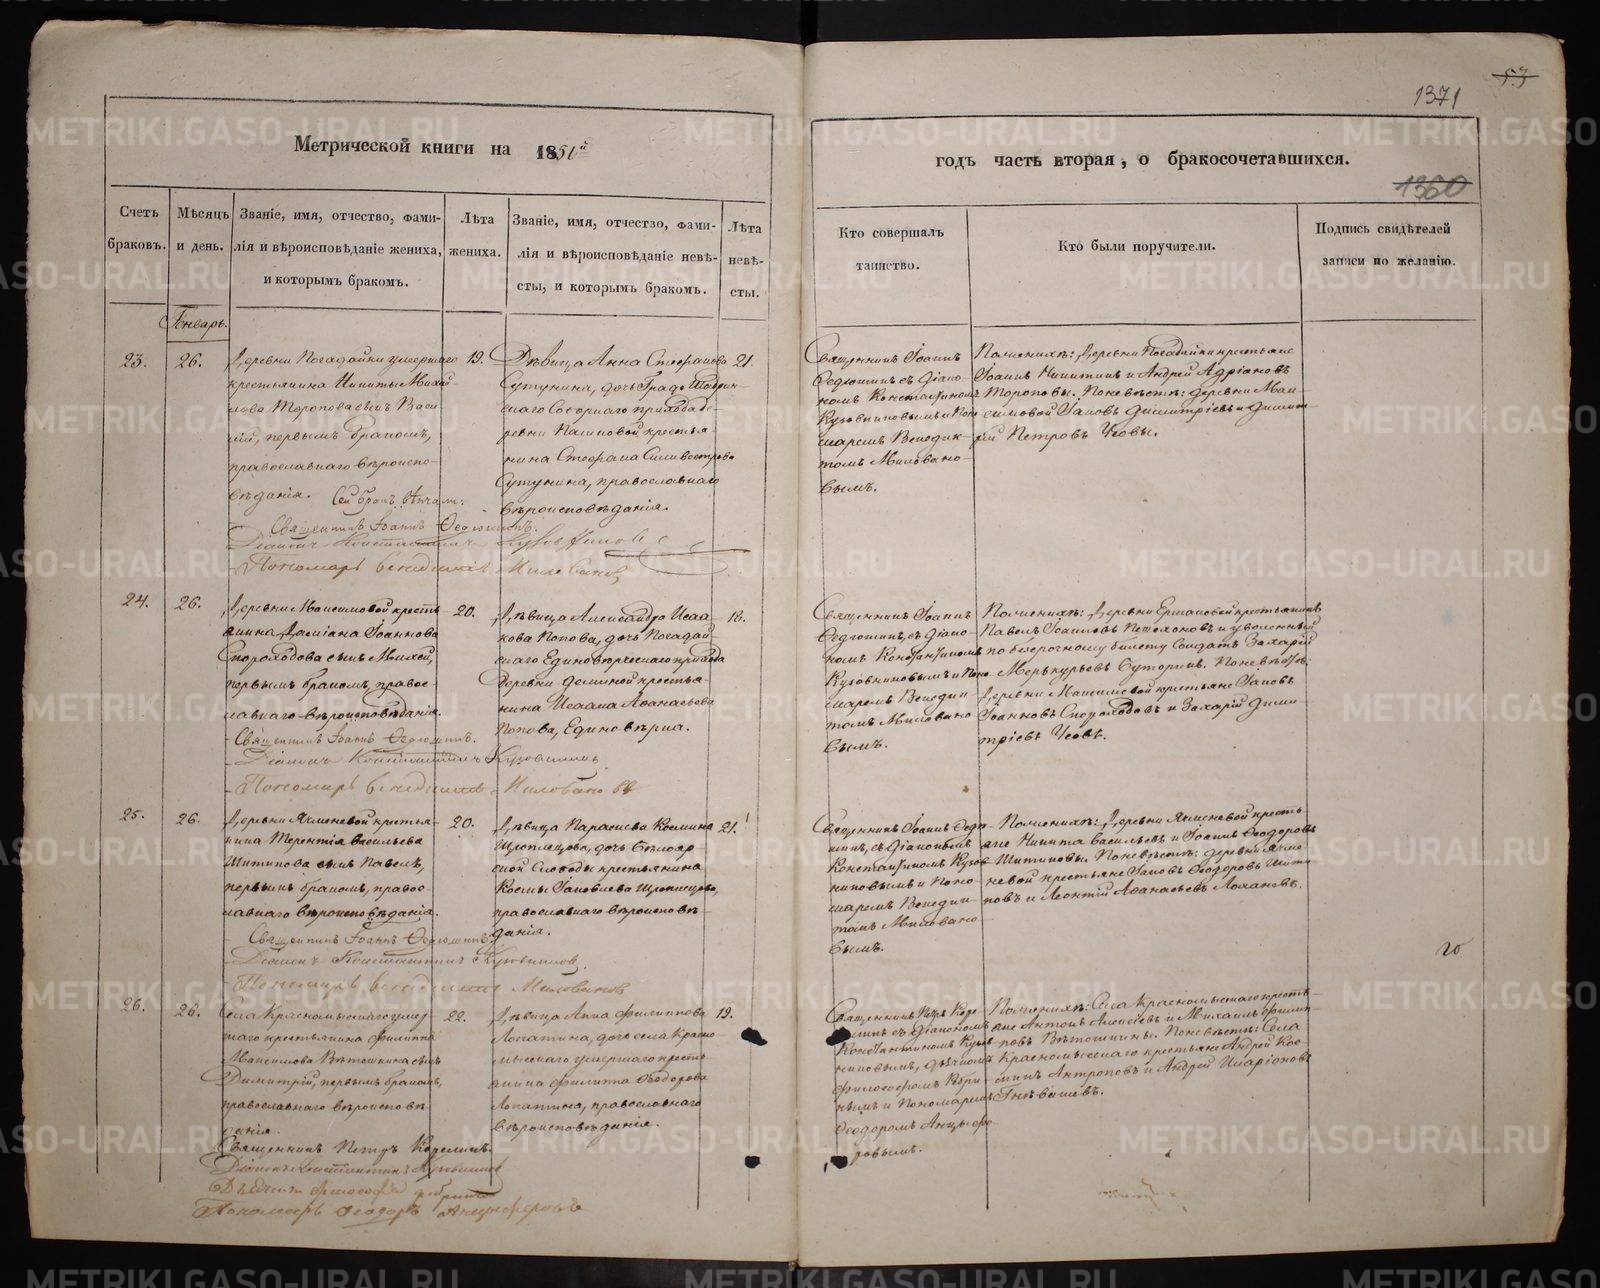 53
1371
Метрической книги на 1850й
годъ часть вторая, о бракосочетавшихся.
1360
Счетъ браковъ.
Мѣсяцъ и день.
Званіе, имя, отчество, фами-
лія и вѣроисповѣданіе жениха,
и которымъ бракомъ.
Лѣта
жениха.
Званіе, имя, отчество, фами-
лія и вѣроисповѣданіе невѣ-
сты, и которымъ бракомъ.
Лѣта
невѣ-
сты.
Кто совершалъ
таинство.
Кто были поручители.
Подпись свидѣтелей
записи по желанію.
Генварь.
23.
26.
Деревни Погадайки умершаго
крестьянина Никиты Михай
лова Торопова сынъ Васи
лій, первымъ бракомъ,
православнаго вѣроиспо-
вѣданія.
Священникъ Іоаннъ Ѳедюшинъ.
Діаконъ Константинъ
Пономарь Венедиктъ Миловановъ
19.
Дѣвица Анна Стефанова
Сутунина, дочь Града Шадрин-
скаго Соборнаго прихода де-
ревни крестья-
нина Стефана Силивестрова
Сутунина, православнаго
вѣроисповѣданія.
21.
Священникъ Іоаннъ
Ѳедюшинъ съ діако-
номъ Константиномъ
и Поно-
маремъ Венедик-
томъ Миловано-
вымъ.
По женихѣ: деревни Погадайки крестьяне
Іоаннъ Никитинъ и Андрей Адріановъ
Тороповы. По невѣстѣ: деревни Мак-
симовой Іаковъ Димитріевъ и Димит-
рій Петровъ Чеовы.
24.
26.
Деревни Максимовой кресть
янина Даміана Іоаннова
Скороходова сынъ Михей,
первымъ бракомъ, право-
славнаго вѣроисповѣданія.
Священникъ Іоаннъ Ѳедюшинъ.
Діаконъ Константинъ
Пономарь Венедиктъ Миловановъ
20.
Дѣвица Александра Исаа-
кова Попова, дочь Погадай-
скаго Единовѣрческаго прихода
деревни крестья-
нина Исаака Аѳанасьева
Попова, Единовѣрка.
18.
Священникъ Іоаннъ
Ѳедюшинъ, съ діако-
номъ Константиномъ
и Поно-
маремъ Венедик
томъ Миловано
вымъ.
По женихѣ: деревни крестьянинъ
Павелъ Іоанновъ и уволенный
по безсрочному билету Солдатъ Захарій
Меркурьевъ Буторинъ. По невѣстѣ:
деревни Максимовой крестьяне Іаковъ
Іоанновъ Скороходовъ и Захарій Дими-
тріевъ Чеовъ.
25.
26.
Деревни Ячменевой крестья-
нина Терентія Васильева
Шитикова сынъ Павелъ,
первымъ бракомъ, право-
славнаго вѣроисповѣданія.
Священникъ Іоаннъ Ѳедюшинъ.
Діаконъ Константинъ
Пономарь Венедиктъ Миловановъ
20.
Дѣвица Параскева Космина
Щеплецова, дочь Бѣлояр-
ской Слободы крестьянина
Космы Іаковлева Щеплецова,
православнаго вѣроисповѣ-
данія.
21.
Священникъ Іоаннъ Ѳедю-
шинъ, съ діакономъ
Константиномъ
и Поно-
маремъ Венедик-
томъ Миловано
вымъ.
По женихѣ: деревни Ячменевой кресть-
яне Никита Васильевъ и Іоаннъ Ѳеодоровъ
Шитиковы. По невѣстѣ: деревни Ячме-
невой крестьяне Іаковъ Ѳеодоровъ Шити
ковъ и Леонтій Аѳанасьевъ Лохановъ.
26.
26.
Села Красномысскаго умер-
шаго крестьянина Филиппа
Максимова Вѣтошкина сынъ
Димитрій, первымъ бракомъ,
православнаго вѣроисповѣ
данія.
Священникъ Петръ
Діаконъ Константинъ
Пономарь Ѳеодоръ Анцыферовъ
22.
Дѣвица Анна Филиппова
Лопатина, дочь села Красно
мысскаго умершаго кресть
янина Филиппа Ѳеодорова
Лопатина, православнаго
вѣроисповѣданія.
19.
Священникъ Петръ
съ діакономъ
Константиномъ
дьячкомъ
и Пономаремъ
Ѳеодоромъ Анцыфе-
ровымъ.
По женихѣ: Села Красномысскаго кресть-
яне Антонъ Алексѣевъ и Михаилъ Филип-
повъ Вѣтошкины. По невѣстѣ: Села
Красномысскаго крестьяне Андрей Кос-
минъ Антроповъ и Андрей Иларіоновъ
Гнѣвашевъ.
METRIKI.GASO-URAL.RU